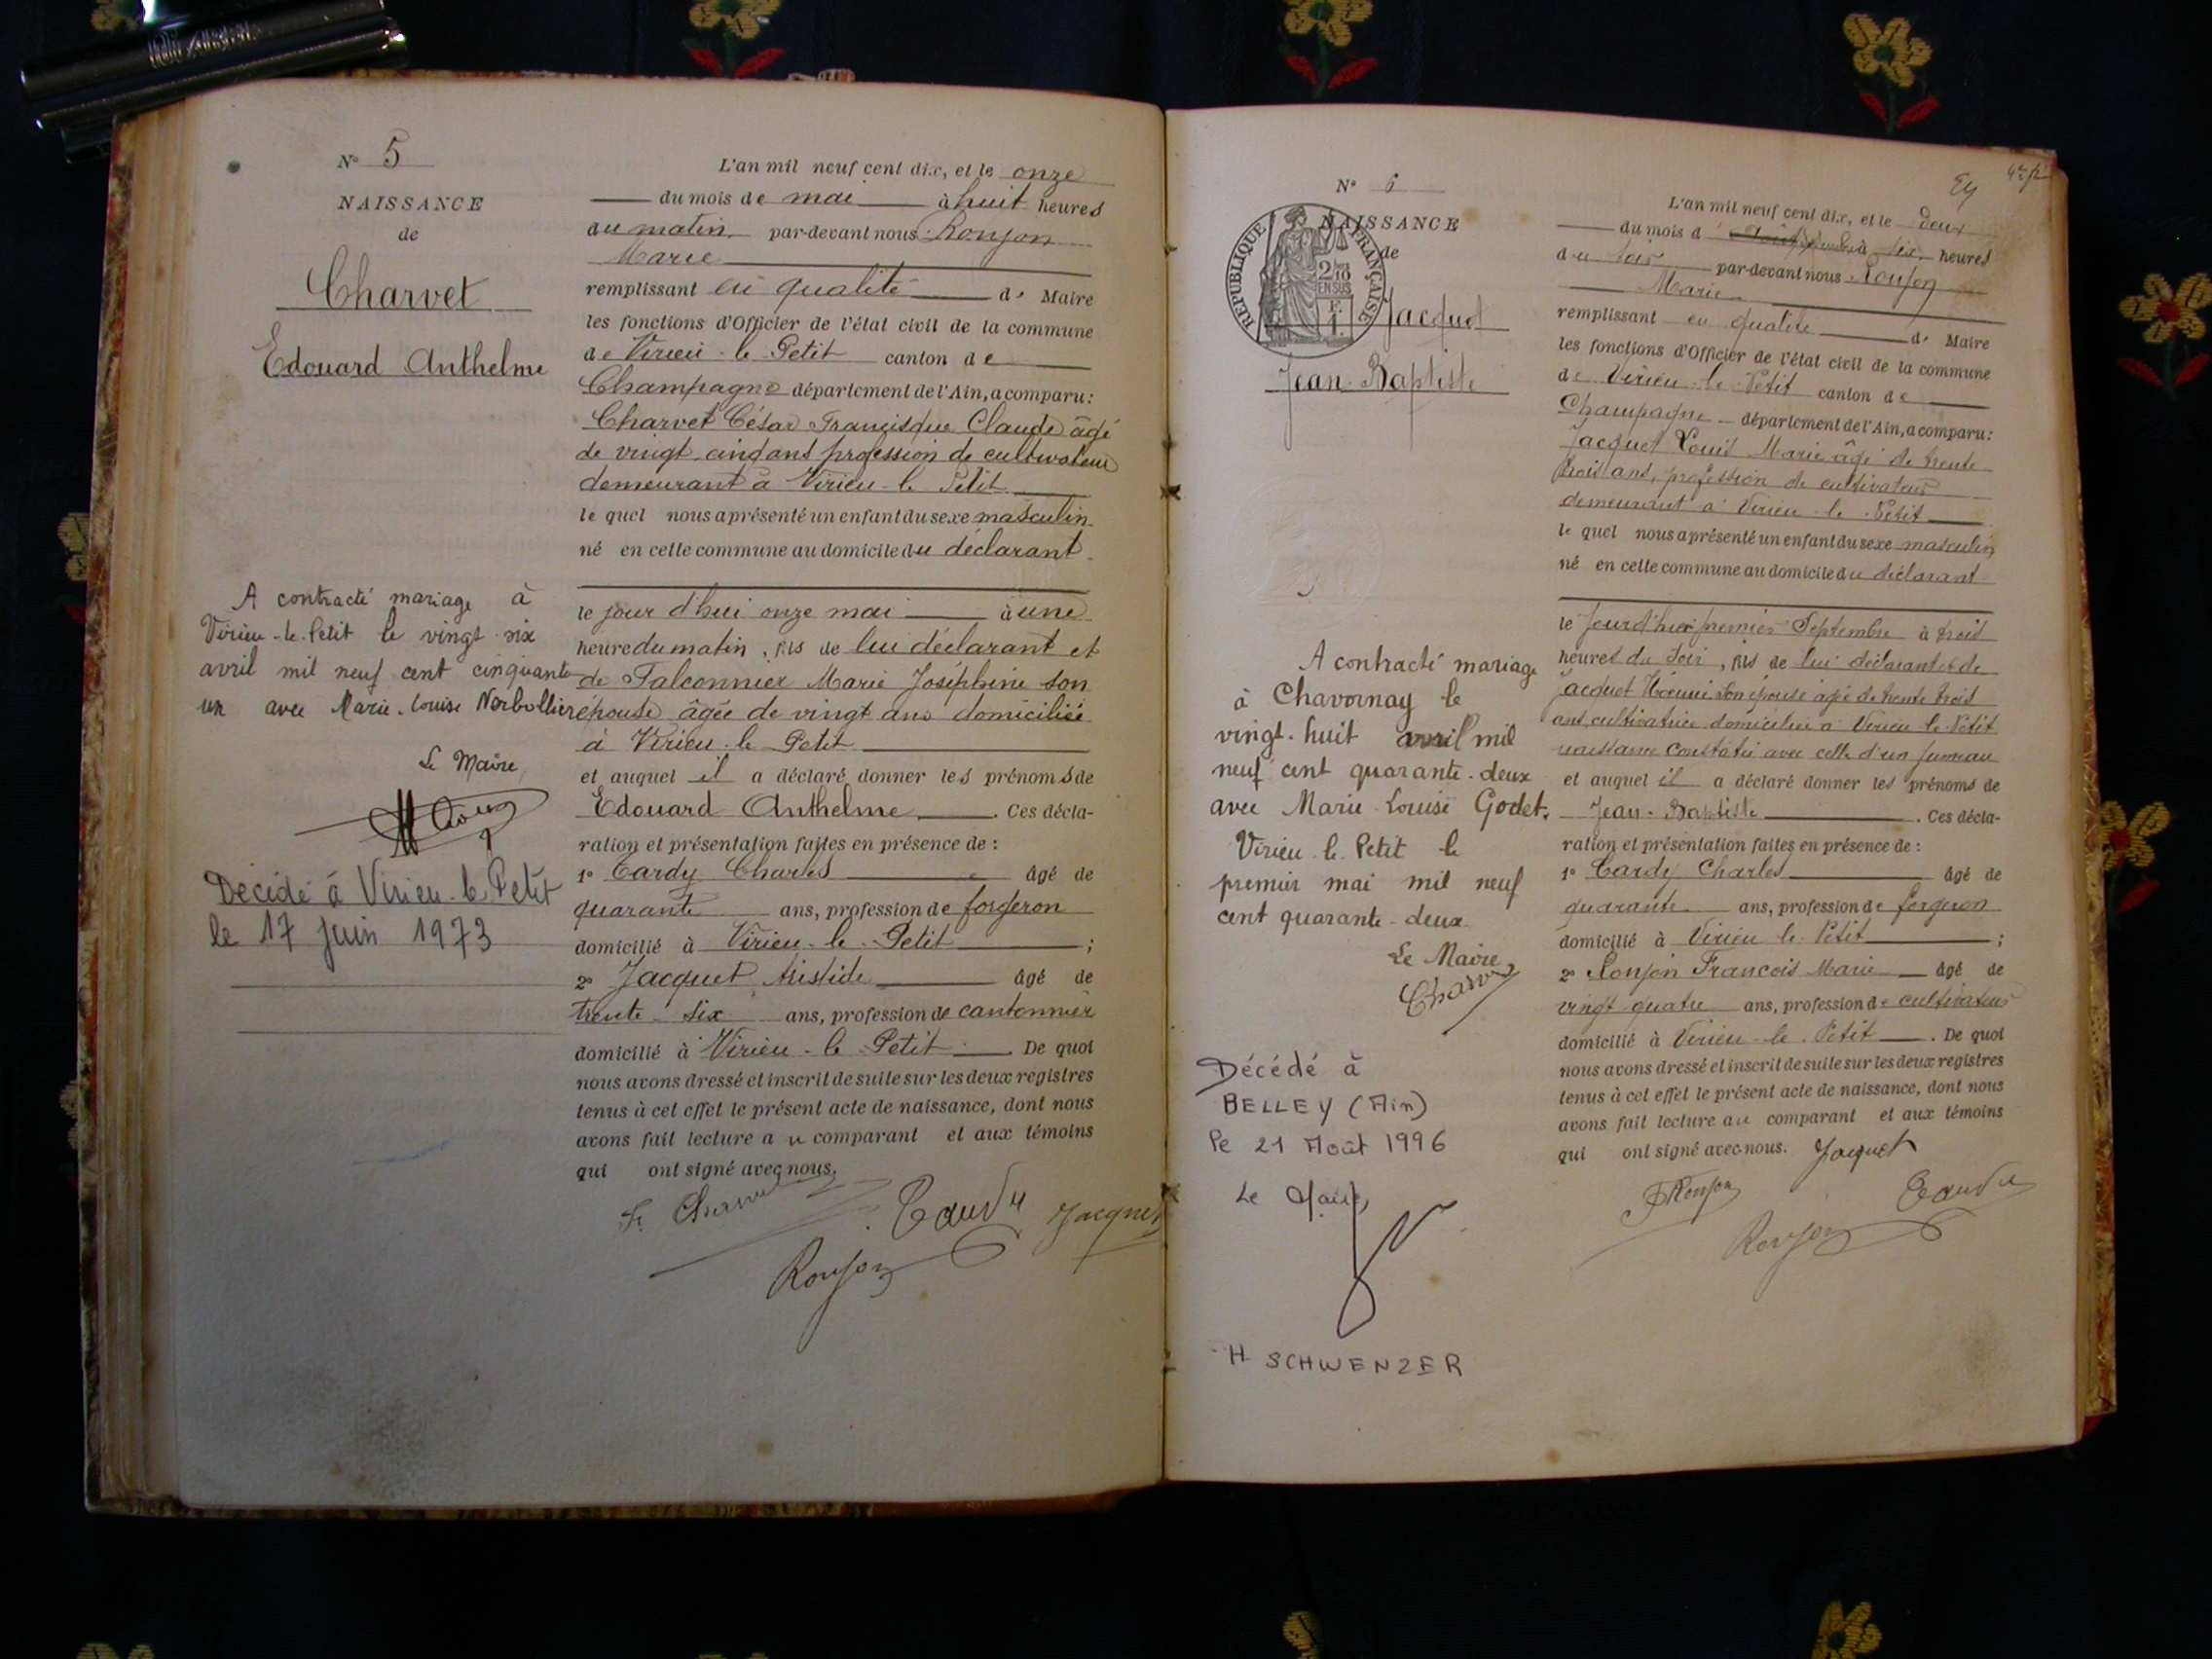 N° 5
NAISSANCE
de
Charvet
Edouard Anthelme
A contracté mariage à
Virieu-le-Petit le vingt six
avril mil neuf cent cinquante
un avec Marie-Louise Nerbollier
Le Maire
Décédé à Virieu-le-Petit
le 17 juin 1973
L'an mil neuf cent dix, et le onze
du mois de mai à huit heures
du matin par-devant nous Roujon
Marie
remplissant en qualité de Maire
les fonctions d'Officier de l'état civil de la commune
de Virieu-le-Petit canton de
Champagne département de l'Ain, a comparu:
Charvet César Francisque Claude âgé
de vingt cinq ans profession de cultivateur
demeurant à Virieu-le-Petit
le quel nous a présenté un enfant du sexe masculin
né en cette commune au domicile du déclarant
le jour d'hui onze mai à une
heure du matin, fils de lui déclarant et
de Falconnier Marie Joséphine son
épouse âgée de vingt ans domiciliée
à Virieu-le-Petit
et auquel il a déclaré donner les prénoms de
Edouard Anthelme. Ces décla-
ration et présentation faites en présence de :
1° Tardy Charles âgé de
quarante ans, profession de forgeron
domicilié à Virieu-le-Petit ;
2° Jacquet Aristide âgé de
trente-six ans, profession de cantonnier
domicilié à Virieu-le-Petit. De quoi
nous avons dressé et inscrit de suite sur les deux registres
tenus à cet effet le présent acte de naissance, dont nous
avons fait lecture au comparant et aux témoins
qui ont signé avec nous.
Tardy Jacquet
Roujon
N° 6
NAISSANCE
de
REPUBLIQUE FRANÇAISE
2/10 EN SUS
F. 1.
Jacquet
Jean-Baptiste
A contracté mariage
à Chavornay le
vingt-huit avril mil
neuf cent quarante-deux
avec Marie-Louise Godet.
Virieu-le-Petit le
premier mai mil neuf
cent quarante-deux
Le Maire
Décédé à
BELLEY (Ain)
le 21 Août 1996
Le Maire
H SCHWENZER
L'an mil neuf cent dix, et le deux
du mois d à six heures
du soir par-devant nous Roujon
Marie
remplissant en qualité de Maire
les fonctions d'Officier de l'état civil de la commune
de Virieu-le-Petit canton de
Champagne département de l'Ain, a comparu:
Jacquet Louis Marie âgé de trente
trois ans, profession de cultivateur
demeurant à Virieu-le-Petit
le quel nous a présenté un enfant du sexe masculin
né en cette commune au domicile du déclarant
le premier Septembre à trois
heures du soir, fils de lui déclarant et de
Jacquet son épouse âgée de trente trois
ans cultivatrice domiciliée à Virieu-le-Petit
naissance constatée avec celle d'un jumeau
et auquel il a déclaré donner les prénoms de
Jean-Baptiste. Ces décla-
ration et présentation faites en présence de :
1° Tardy Charles âgé de
quarante ans, profession de forgeron
domicilié à Virieu-le-Petit ;
2° Roujon François Marie âgé de
vingt quatre ans, profession de cultivateur
domicilié à Virieu-le-Petit. De quoi
nous avons dressé et inscrit de suite sur les deux registres
tenus à cet effet le présent acte de naissance, dont nous
avons fait lecture au comparant et aux témoins
qui ont signé avec nous. Jacquet
FRoujon Tardy
Roujon